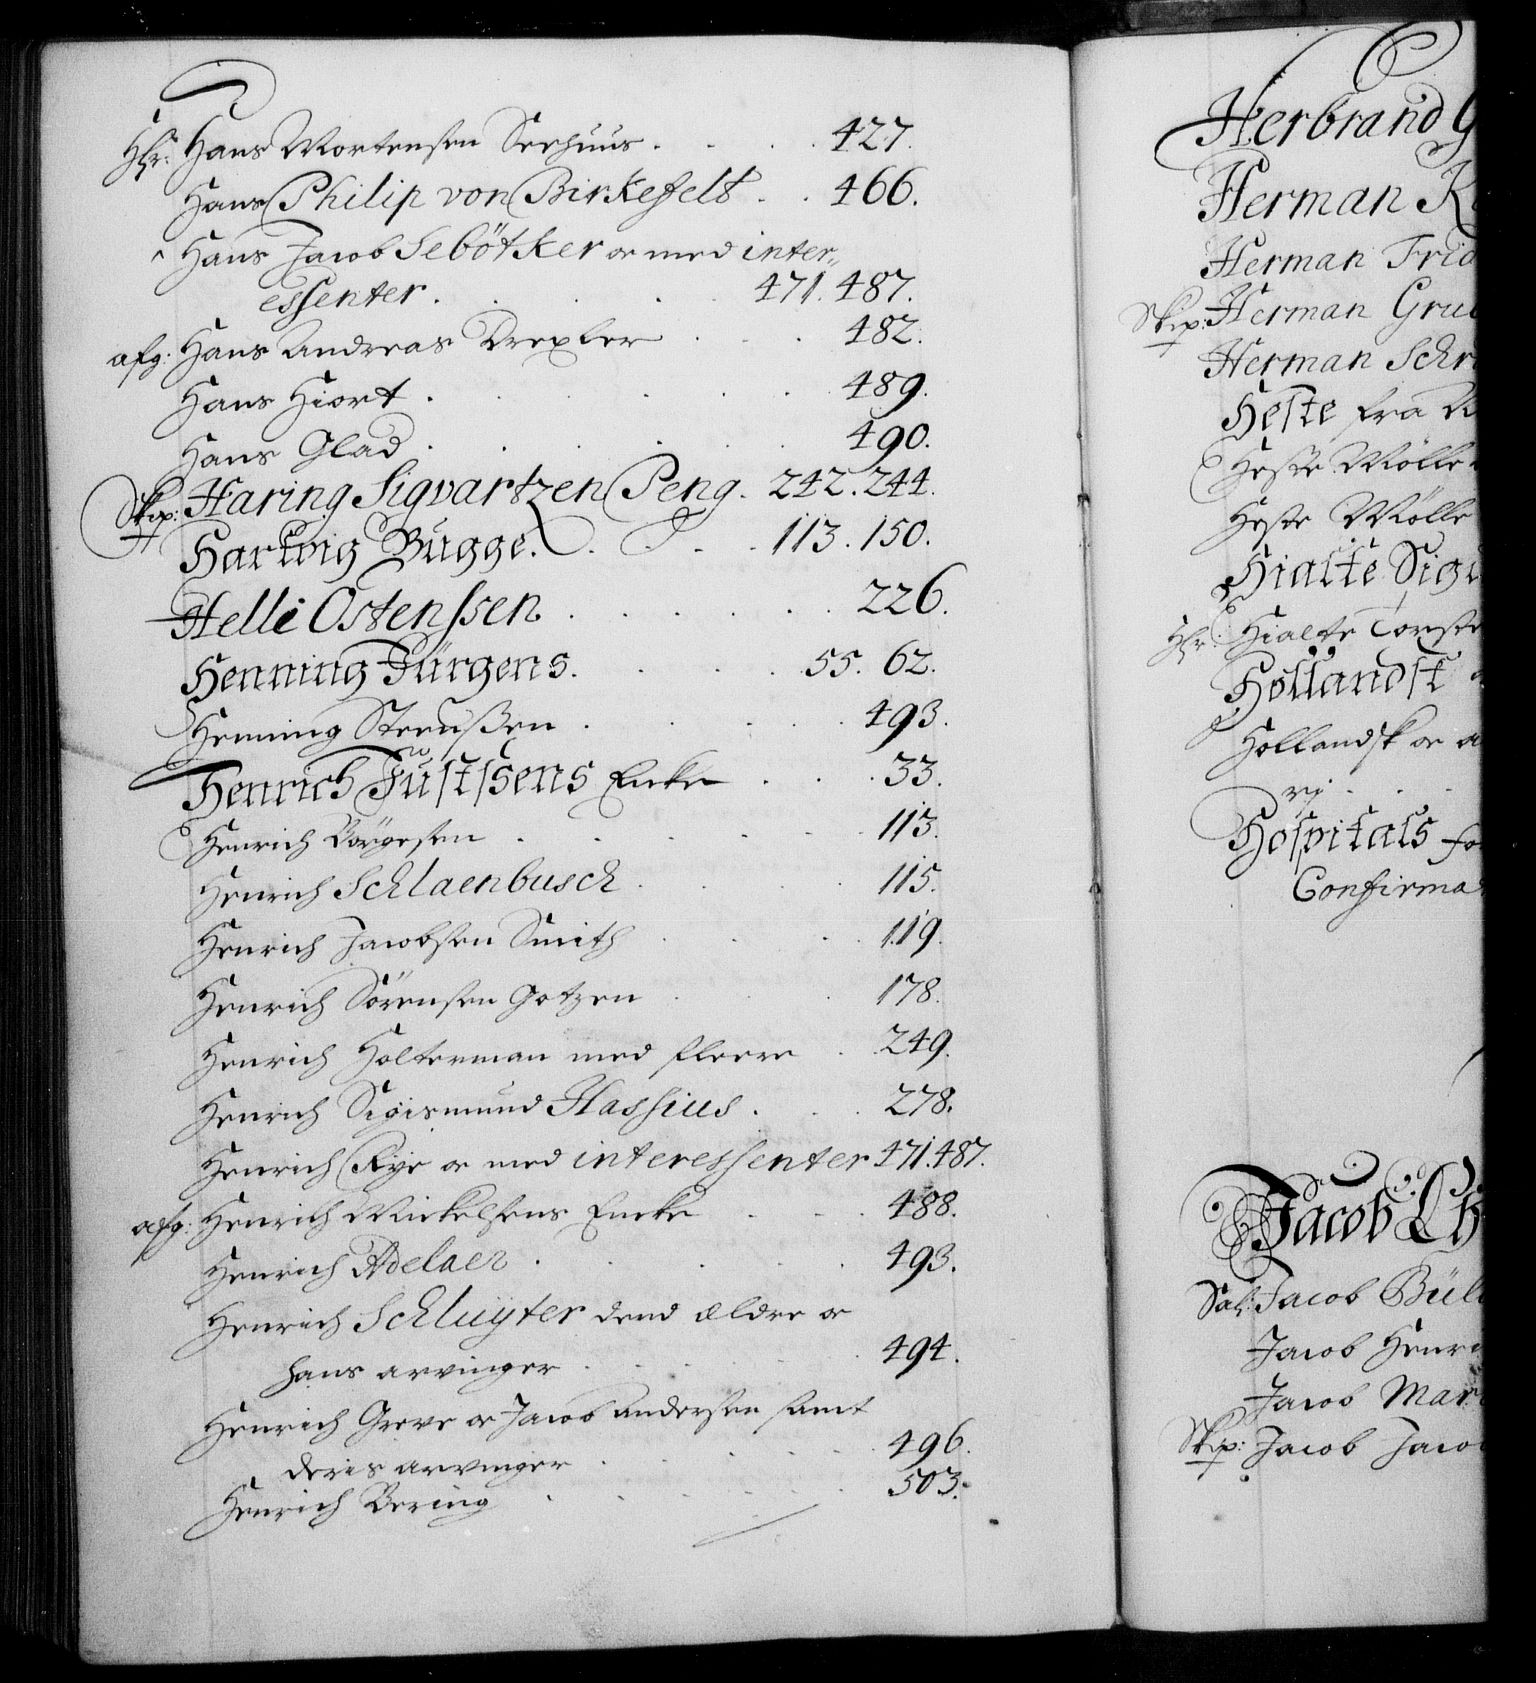 Hr: Hans Mortensen Seehuus. 427.
Hans Philip von Birkefelt. 466.
Hans Jacob Sebötker oc med inter,,
essenter. 471. 487.
afg: Hans Andreas Drexler 482.
Hans Hiort. 489.
Hans Glad. 490.
Skip: Haring Sigvartzen Peng. 242. 244.
Hartvig Bugge. 113. 150.
Helle Ostenssen 226.
Henning Jürgens. 55. 62.
Henning Steensßen. 493.
Henrich Justsens Encke 33.
Henrich Börgesen 113.
Henrich Schlaenbusch. 115.
Henrich Jacobsen Smith 119.
Henrich Sörensen Gotzen 178.
Henrich Holterman med fleere 249.
Henrich Sigismund Hassius. 278.
Henrich Rye oc med interessenter 471. 487.
afg: Henrich Mickelsens Encke 488.
Henrich Adelaer. 493.
Henrich Schluyter dend ældre oc
hans arvinger 494.
Henrich Greve oc Jacob Andersen samt
deris arvinger 496.
Henrich Bering 503.
Herbrand G
Herman K
Herman Frid
Skip: Herman Gru
Herman Schr
Heste fra
Heste Mölle
Heste Mölle
Hialte Sig
Hr: Hialte Torste
Hollandsk
Hollandsk oc a
Hospitals fo
Confirma
Jacob Ch
Sal: Jacob Bül
Jacob Henr
Jacob Mar
Skip: Jacob Jaco